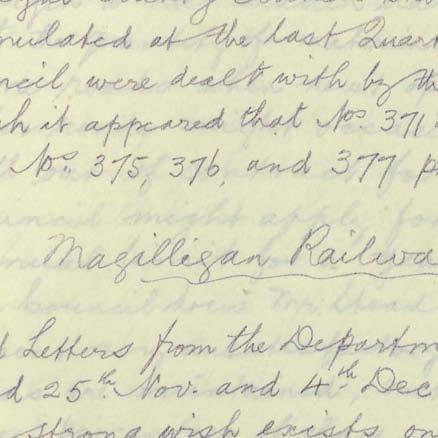 mulated at the last Quar
ncil were dealt with by th
h it appeared that Nos. 371
Nos. 375, 376, and 377 p
Magilligan Railwa
Letters from the Departm
d 25th Nov. and 4th Dec
strong wish exists on